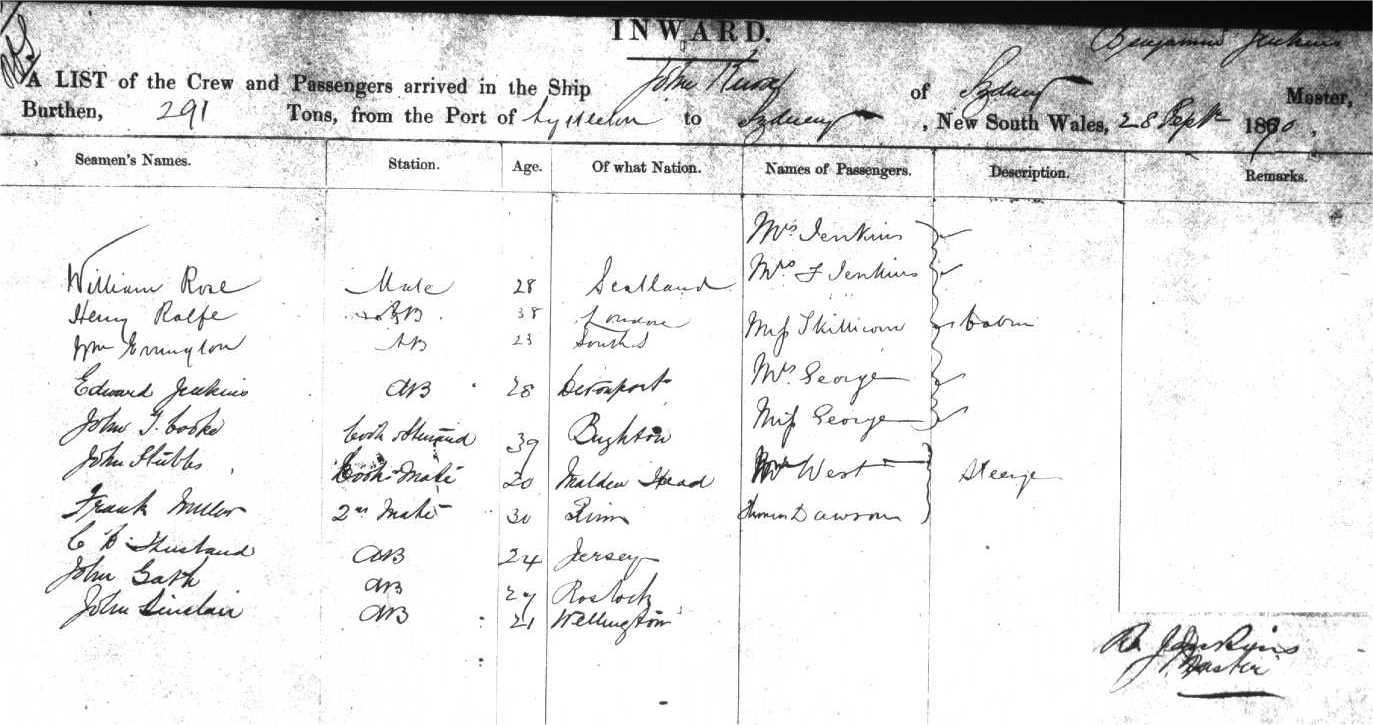 INWARD.
Benjamin Jenkins
A LIST of the Crew and Passengers arrived in the Ship John of Sydney Master,
Burthen, 291 Tons, from the Port of Lyttelton to Sydney, New South Wales, 28 Septr 1870,
Seamen's Names. Station. Age. Of what Nation. Names of Passengers. Description. Remarks.
Mrs Jenkins
William Rose Mate 28 Scotland Mrs F Jenkins
Henry Rolfe AB 38 London Miss Skillicorn Cabin
Wm Errington AB 23 South S
Edward Jenkins AB 28 Devonport Mrs. George
John T. Cooke Cook & Steward 39 Brighton Miss George
John Stubbs Cooks Mate 20 Malden Head West Steerage
Frank Miller 2nd Mate 30 Thomas Dawson
C B Husband AB 24 Jersey
John Gath AB 27 Rostock
John Sinclair AB 21 Wellington
B. Jenkins
Master